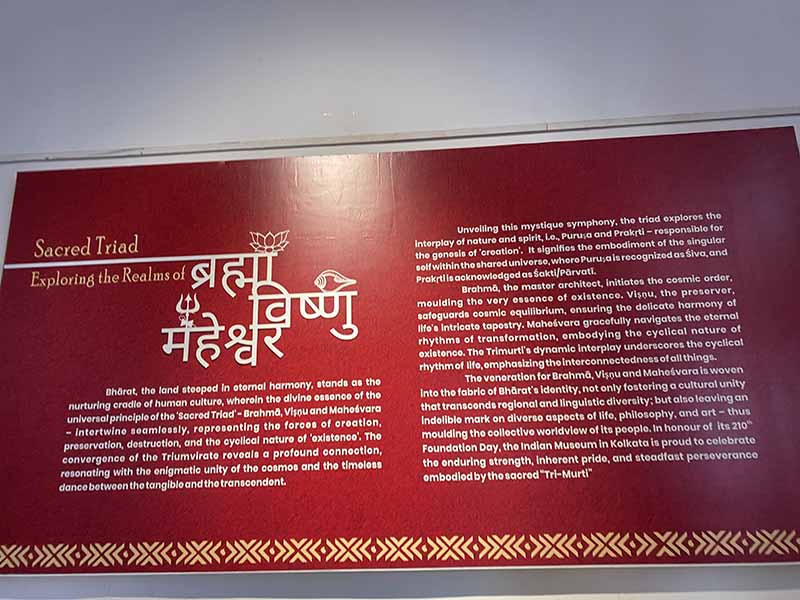 Sacred Triad
Exploring the Realms of
ब्रह्मा
विष्णु
महेश्वर
Bhārat, the land steeped in eternal harmony, stands as the
nurturing cradle of human culture, wherein the divine essence of the
universal principle of the 'Sacred Triad' - Brahmā, Viṣṇu and Maheśvara
– intertwine seamlessly, representing the forces of creation,
preservation, destruction, and the cyclical nature of 'existence'. The
convergence of the Triumvirate reveals a profound connection,
resonating with the enigmatic unity of the cosmos and the timeless
dance between the tangible and the transcendent.
Unveiling this mystique symphony, the triad explores the
interplay of nature and spirit, i.e., Puruṣa and Prakṛti – responsible for
the genesis of 'creation'. It signifies the embodiment of the singular
self within the shared universe, where Puruṣa is recognized as Śiva, and
Prakṛti is acknowledged as Śakti/Pārvatī.
Brahmā, the master architect, initiates the cosmic order,
moulding the very essence of existence. Viṣṇu, the preserver,
safeguards cosmic equilibrium, ensuring the delicate harmony of
life's intricate tapestry. Maheśvara gracefully navigates the eternal
rhythms of transformation, embodying the cyclical nature of
existence. The Trimurti's dynamic interplay underscores the cyclical
rhythm of life, emphasizing the interconnectedness of all things.
The veneration for Brahmā, Viṣṇu and Maheśvara is woven
into the fabric of Bhārat's identity, not only fostering a cultural unity
that transcends regional and linguistic diversity; but also leaving an
indelible mark on diverse aspects of life, philosophy, and art – thus
moulding the collective worldview of its people. In honour of its 210th
Foundation Day, the Indian Museum in Kolkata is proud to celebrate
the enduring strength, inherent pride, and steadfast perseverance
embodied by the sacred "Tri-Murti"